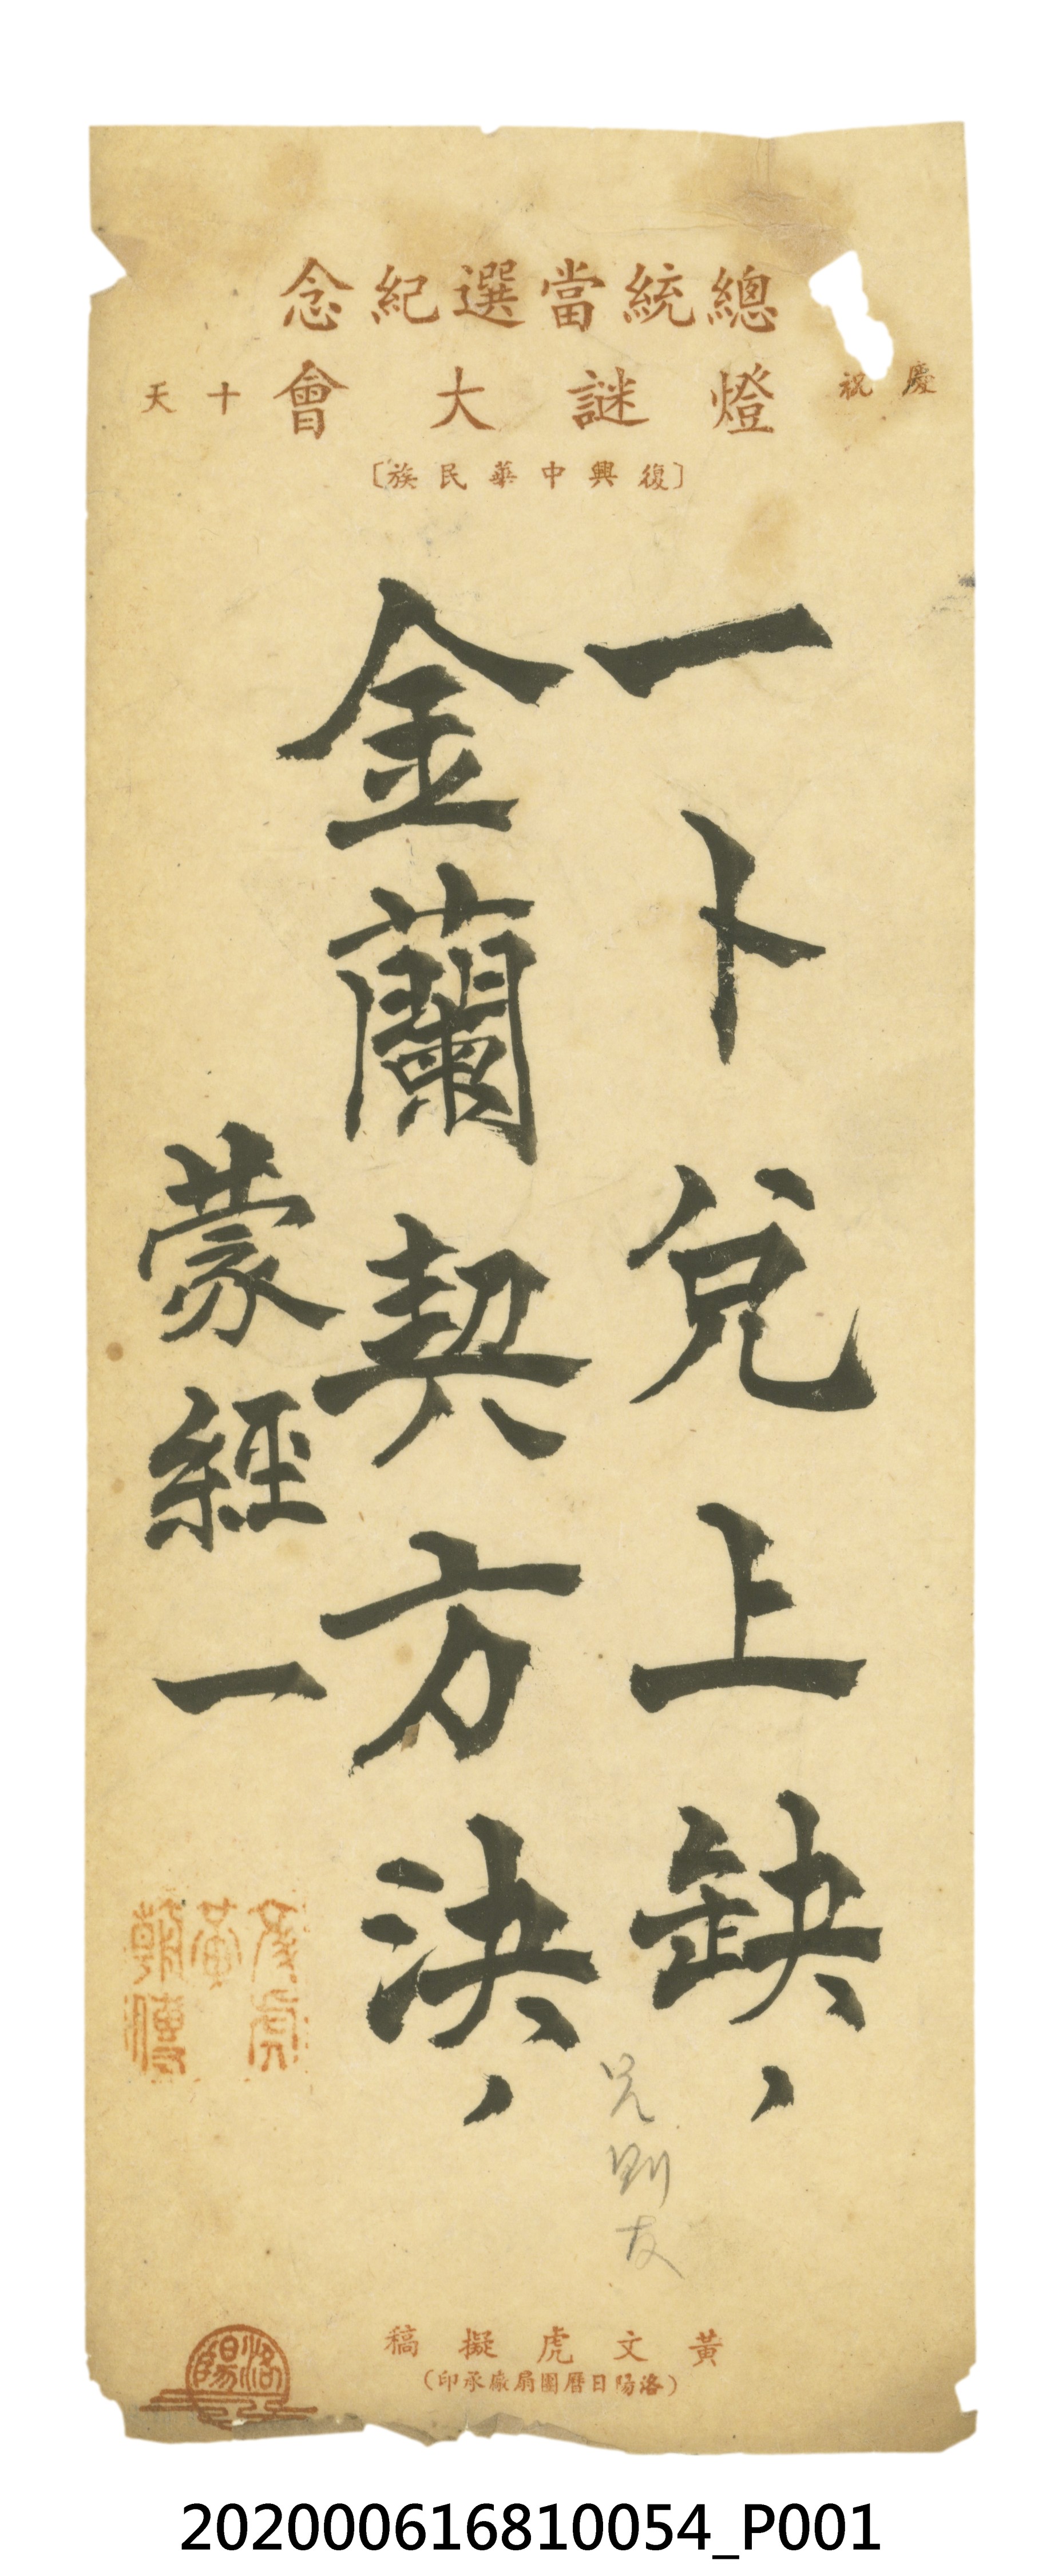 總統當選紀念
慶祝 燈謎大會 十天
〔復興中華民族〕
一卜兌上缺，
金蘭契方決，
蒙經一
兄則友
文虎
黃
朝傳
黃文虎擬稿
(洛陽日曆團扇廠承印)
洛陽
202000616810054_P001